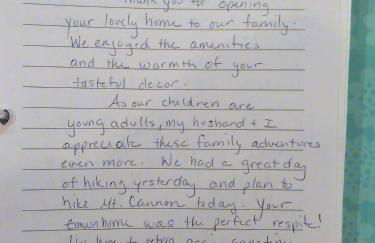 Thank you for opening
your lovely home to our family.
We enjoyed the amenities
and the warmth of your
tasteful decor.
As our children are
young adults, my husband + I
appreciate these family adventures
even more. We had a great day
of hiking yesterday and plan to
hike Mt. Cannon today. Your
townhome was the perfect respite!
to